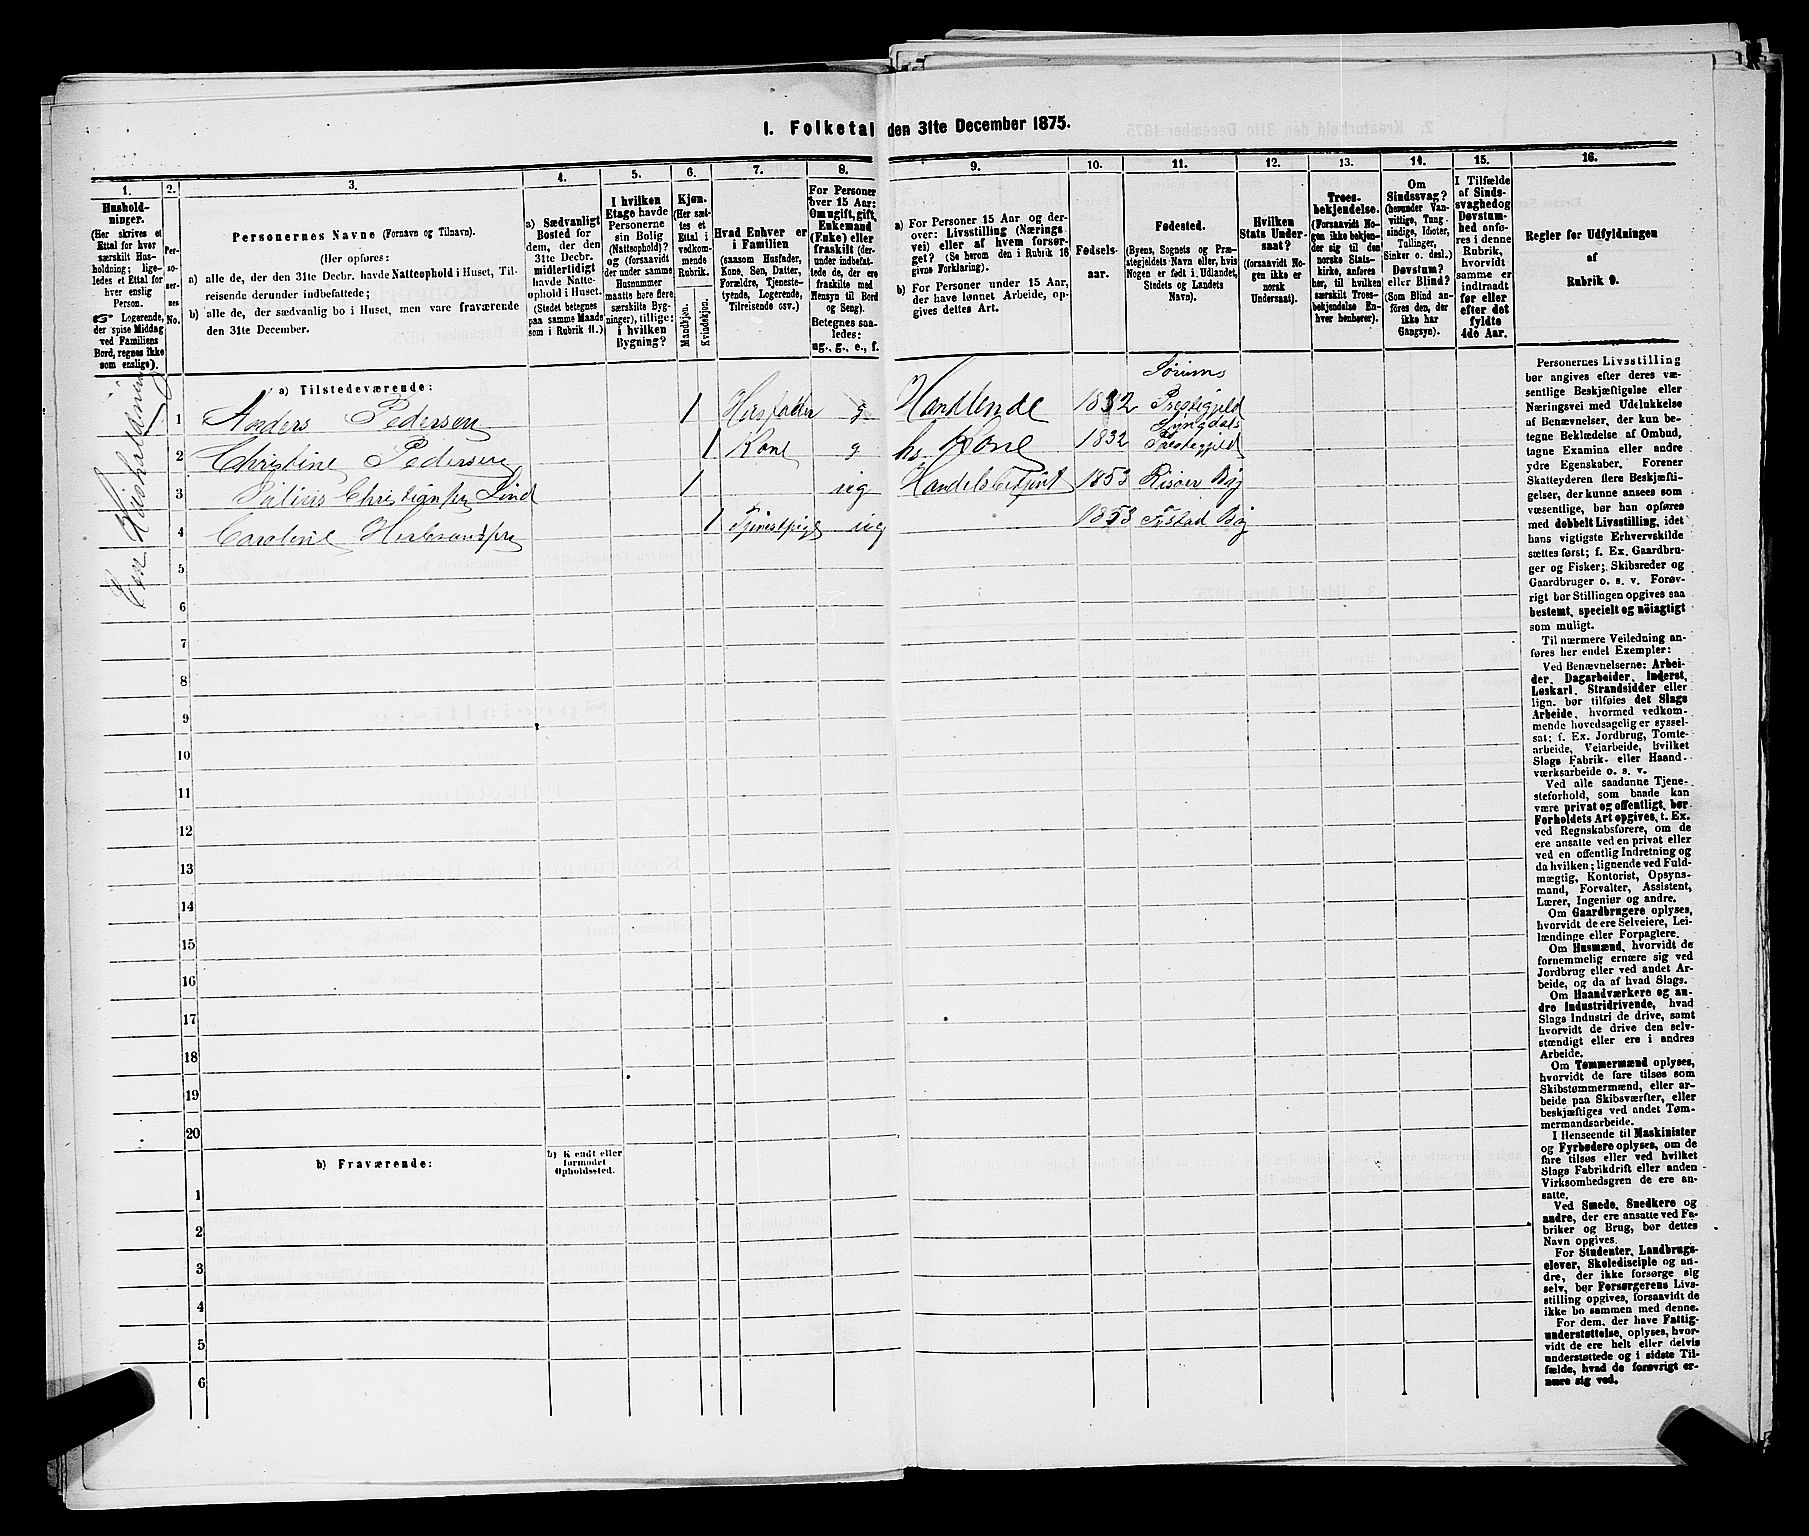 1. Folketal den 31te December 1875.
1.
Hushold-
ninger.
(Her skrives et
Ettal for hver
særskilt Hus-
holdning; lige-
ledes et Ettal for
hver enslig
Person.
Logerende,
der spise Middag
ved Familiens
Bord, regnes ikke
som enslige).
2.
Per-
so-
ner-
nes
No.
3.
Personernes Navne (Fornavn og Tilnavn).
(Her opføres:
a) alle de, der den 31te Decbr. havde Natteophold i Huset, Til-
reisende derunder indbefattede;
b) alle de, der sædvanlig bo i Huset, men vare fraværende
den 31te December.
4.
a) Sædvanligt
Bosted for
dem, der den
31te Decbr.
midlertidigt
havde Natte-
ophold i Huset.
(Stedet betegnes
paa samme Maade
som i Rubrik 11.)
5.
I hvilken
Etage havde
Personerne
sin Bolig
(Natteophold)?
og (forsaavidt
der under samme
Husnummer
maatte høre flere
særskilte Byg-
ninger), tillige:
i hvilken
Bygning?
6.
Kjøn.
(Her sæt-
tes et
Ettal i
vedkom-
mende
Rubrik.
Mandkjøn.
Kvindekjøn.
7.
Hvad Enhver er
i Familien
(saasom Husfader,
Kone, Søn, Datter,
Forældre, Tjeneste-
tyende, Logerende,
Tilreisende osv.)
8.
For Personer
over 15 Aar:
Om ugift, gift,
Enkemand
(Enke) eller
fraskilt (der-
under indbefat-
tede de, der ere
fraskilte med
Hensyn til Bord
og Seng).
Betegnes saa-
ledes:
ug., g., e., f.
9.
a) For Personer 15 Aar og der-
over: Livsstilling (Nærings
vei) eller af hvem forsør-
get? (Se herom den i Rubrik 16
givne Forklaring).
b) For Personer under 15 Aar,
der have lønnet Arbeide, op-
gives dettes Art.
10.
Fødsels-
aar.
11.
Fødested.
(Byens, Sognets og Præ-
stegjeldets Navn eller, hvis
Nogen er født i Udlandet,
Stedets og Landets
Navn).
12.
Hvilken
Stats Under-
saat?
(forsaavidt No-
gen ikke er
norsk
Undersaat).
13.
Troes-
bekjendelse.
(Forsaavidt No-
gen ikke bekjen-
der sig til den
norske Stats-
kirke, anføres
her, til hvilken
særskilt Troes-
bekjendelse En-
hver henhører).
14.
Om
Sindssvag?
(herunder Van-
vittige, Tung-
sindige, Idioter,
Tullinger,
Sinker o. desl.)
Døvstum?
eller Blind?
(Som Blind an-
føres den, der
ikke har
Gangsyn).
15.
I Tilfælde
af Sinds-
svaghed og
Døvstum-
hed anfø-
res i denne
Rubrik,
hvorvidt
samme er
indtraadt
før eller
efter det
fyldte
4de Aar.
16.
Regler for Udfyldningen
af
Rubrik 9.
a) Tilstedeværende:
Een Husholdning
1 Anders Pedersen 1 Husfader g Handlende 1832 Sørums Prestegjeld
2 Christine Pedersen 1 Kone g hs Kone 1832 Lyngdals Prestegjeld
3 Julius Christiansen Lind 1 ug Handelsbetjent 1853 Risøer By
4 Caroline Herbrandsen 1 Tjenestpige ug 1853 By
5
6
7
8
9
10
11
12
13
14
15
16
17
18
19
20
b) Fraværende:
b) Kjendt eller
formodet
Opholdssted.
1
2
3
4
5
6
Personernes Livsstilling
bør angives efter deres væ-
sentlige Beskjæftigelse eller
Næringsvei med Udelukkelse
af Benævnelser, der kun be-
tegne Beklædelse af Ombud,
tagne Examina eller andre
ydre Egenskaber. Forener
Skatteyderen flere Beskjæfti-
gelser, der kunne ansees som
væsentlige, bør han opføres
med dobbelt Livsstilling, idet
hans vigtigste Erhvervskilde
sættes først; f. Ex. Gaardbru-
ger og Fisker; Skibsreder og
Gaardbruger o. s. v. Forøv-
rigt bør Stillingen opgives saa
bestemt, specielt og nøiagtigt
som muligt.
Til nærmere Veiledning an-
føres her endel Exempler:
Ved Benævnelserne: Arbei-
der, Dagarbeider, Inderst,
Løskarl, Strandsidder eller
lign. bør tilføies det Slags
Arbeide, hvormed vedkom-
mende hovedsagelig er syssel-
sat; f. Ex. Jordbrug, Tomte-
arbeide, Veiarbeide, hvilket
Slags Fabrik- eller Haand-
værksarbeide o. s. v.
Ved alle saadanne Tjene-
steforhold, som baade kan
være privat og offentligt, bør
Forholdets Art opgives, t. Ex.
ved Regnskabsførere, om de
ere ansatte ved en privat eller
ved en offentlig Indretning og
da hvilken; lignende ved Fuld-
mægtig, Kontorist, Opsyns-
mand, Forvalter, Assistent,
Lærer, Ingeniør og andre.
Om Gaardbrugere oplyses,
hvorvidt de ere Selveiere, Lei-
lændinge eller Forpagtere.
Om Husmænd, hvorvidt de
fornemmelig ernære sig ved
Jordbrug eller ved andet Ar-
beide, og da af hvad Slags.
Om Haandværkere og an-
dre Industridrivende, hvad
Slags Industri de drive, samt
hvorvidt de drive den selv-
stændigt eller ere i andres
Arbeide.
Om Tømmermænd oplyses,
hvorvidt de fare tilsøs som
Skibstømmermænd, eller ar-
beide paa Skibsværfter, eller
beskjæftiges ved andet Tøm-
mermandsarbeide.
I Henseende til Maskinister
og Fyrbødere oplyses, om de
fare tilsøs eller ved hvilket
Slags Fabrikdrift eller anden
Virksomhedsgren de ere an-
satte.
Ved Smede, Snedkere og
andre, der ere ansatte ved Fa-
briker og Brug, bør dettes
Navn opgives.
For Studenter, Landbrugs-
elever, Skoledisciple og an-
dre, der ikke forsørge sig
selv, bør Forsørgerens Livs-
stilling opgives, forsaavidt de
ikke bo sammen med denne.
For dem, der have Fattig-
understøttelse, oplyses, hvor-
vidt de ere helt eller delvis
understøttede og i sidste Til-
fælde, hvad de forøvrigt er-
nære sig ved.